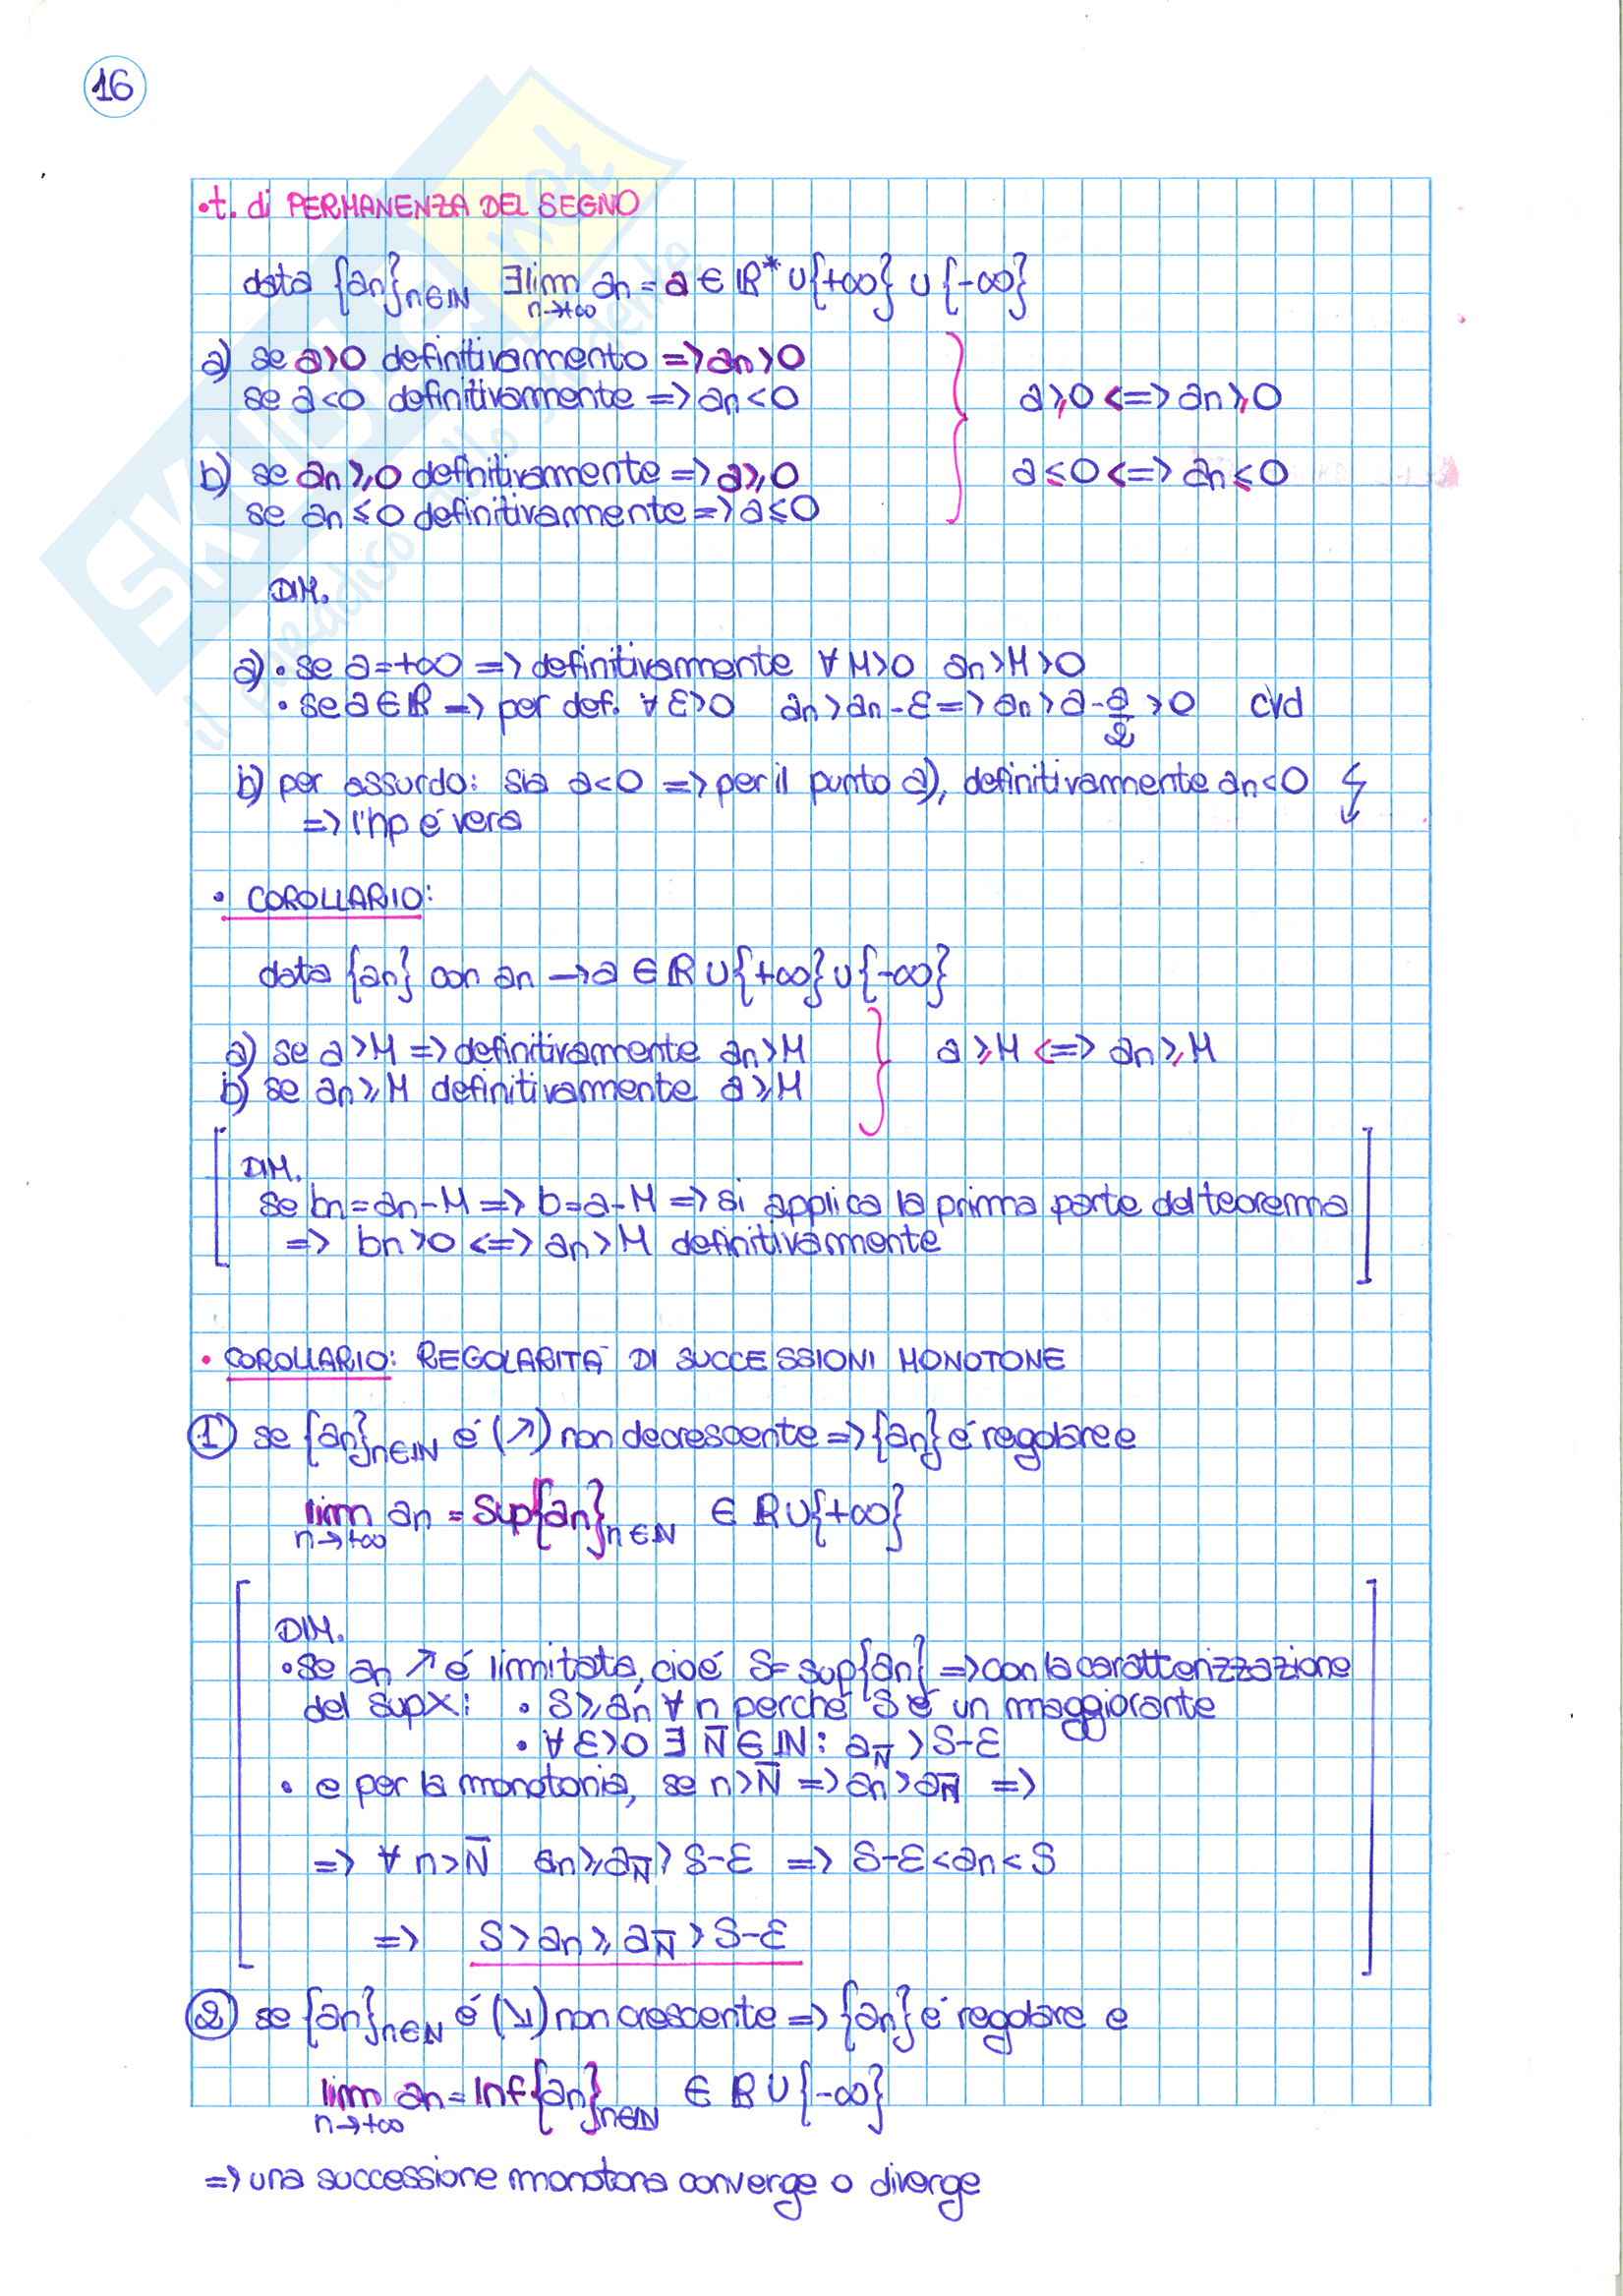 16
•t. di PERMANENZA DEL SEGNO
data {an}n∈ℕ ∃lim n→+∞ an = a ∈ ℝ* ∪{+∞} ∪ {-∞}
a) se a>0 definitivamento => an>0
se a<0 definitivamente => an<0
a⩾0 <=> an⩾0
b) se an⩾0 definitivamente => a⩾0
a≤0 <=> an≤0
se an≤0 definitivamente => a≤0
DIM.
a) • se a=+∞ => definitivamente ∀ M>0 an>M>0
• se a∈ℝ => per def. ∀ ε>0 an>an-ε => an>a-a/2>0 cvd
b) per assurdo: sia a<0 => per il punto a), definitivamente an<0
=> l'hp é vera
• COROLLARIO:
data {an} con an → a ∈ ℝ ∪{+∞}∪{-∞}
a) se a>M => definitivamente an>M
a⩾M <=> an⩾M
b) se an⩾M definitivamente a⩾M
DIM.
se bn=an-M => b=a-M => si applica la prima parte del teorema
=> bn>0 <=> an>M definitivamente
• COROLLARIO: REGOLARITÀ DI SUCCESSIONI MONOTONE
1 se {an}n∈ℕ é (↗) non decrescente => {an} é regolare e
lim n→+∞ an = Sup{an}n∈ℕ ∈ ℝ∪{+∞}
DIM.
• Se an ↗ é limitata, cioé S= sup{an} => con la caratterizzazione
del supX: • S⩾an ∀ n perché S é un maggiorante
• ∀ ε>0 ∃ N̅ ∈ ℕ: aN̅ > S-ε
• e per la monotonia, se n>N̅ => an>aN̅ =>
=> ∀ n>N̅ an⩾aN̅>S-ε => S-ε<an<S
=> S>an⩾aN̅>S-ε
2 se {an}n∈ℕ é (↘) non crescente => {an} é regolare e
lim n→+∞ an = Inf{an}n∈ℕ ∈ ℝ∪{-∞}
=> una successione monotona converge o diverge